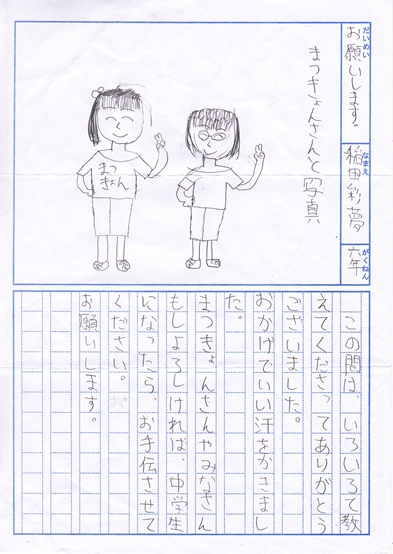 だいめい
お願いします。
なまえ
稲田彩夢
がくねん
六年
まつきょんさんと写真
まつ
きょん
この間は、いろいろて教
えてくださってありがとう
ございました。
おかげでいい汗をかきまし
た。
まつきょんさんやみなさん
もしよろしければ、中学生
になったら、お手伝させて
ください。
お願いします。